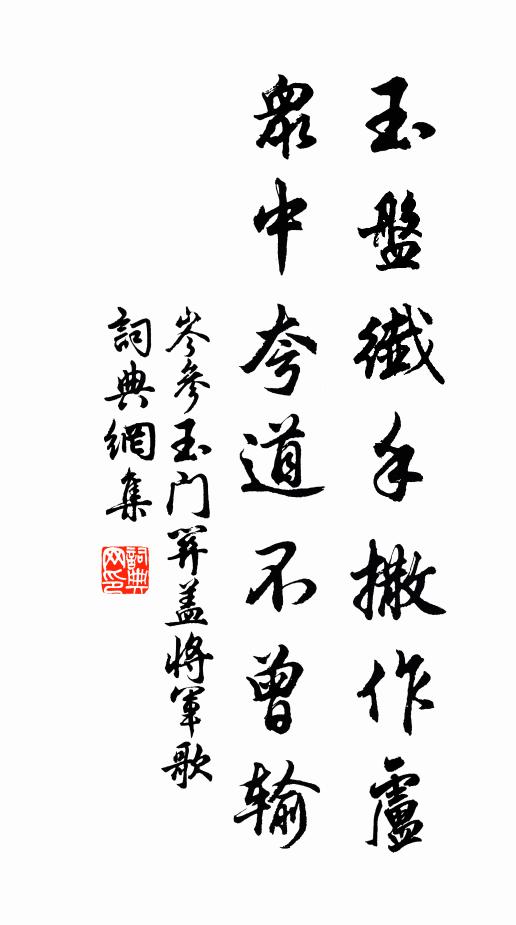 玉盤纖手撒作盧
眾中夸道不曾輸
岑參玉门關盖將軍歌
詞典網集
詞典网印